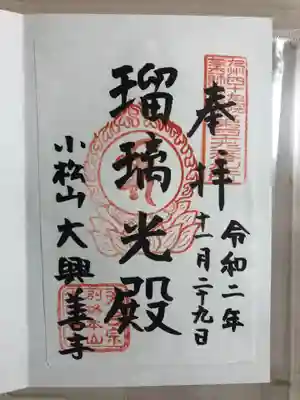 奉拝
令和二年
十一月二十九日
瑠璃光殿
小松山大興善寺